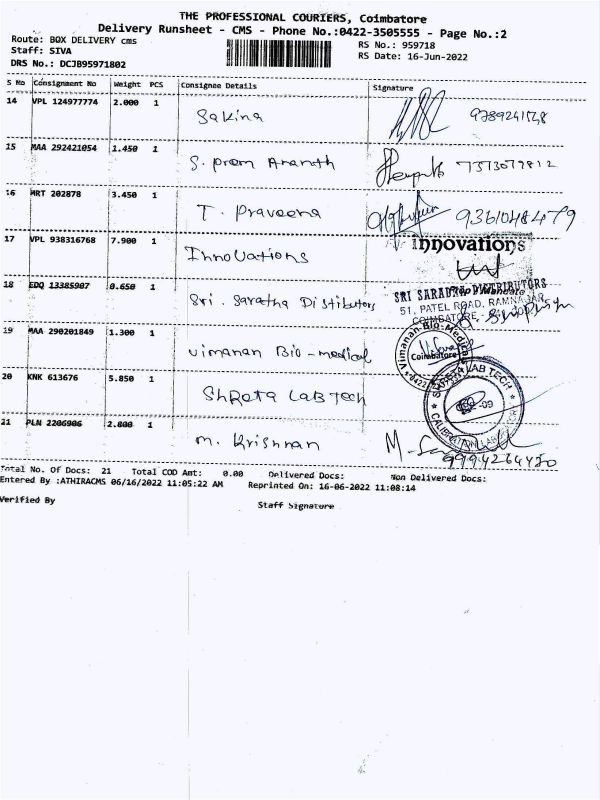 THE PROFESSIONAL COURIERS, Coimbatore
Delivery Runsheet - CMS - Phone No.:0422-3505555 - Page No.:2
Route: BOX DELIVERY cms
RS No.: 959718
Staff: SIVA
RS Date: 16-Jun-2022
DRS No.: DCJB95971802
S No Consignment No Weight PCS Consignee Details Signature
14 VPL 124977774 2.000 1 Sakina 9789241548
15 MAA 292421054 1.450 1 S. prem Ananth 7373079812
16 MRT 202878 3.450 1 T. Praveena 9361048479
17 VPL 938316768 7.900 1 Innovations innovations
18 EDQ 13385907 0.650 1 Sri. Saratha Distibutors SRI SARADHA DISTRIBUTORS
51, PATEL ROAD, RAMNAGAR,
COIMBATORE
19 MAA 290201849 1.300 1 Vimanan Bio-medical Vimanan Bio-Medical Coimbatore
20 KNK 613676 5.850 1 ShReta LAB Tech LAB TECH CALIBRATION LAB
21 PLN 2206906 2.800 1 M. Krishnan
9994264450
Total No. Of Docs: 21 Total COD Amt: 0.00 Delivered Docs: Non Delivered Docs:
Entered By :ATHIRACMS 06/16/2022 11:05:22 AM Reprinted On: 16-06-2022 11:08:14
Verified By Staff Signature